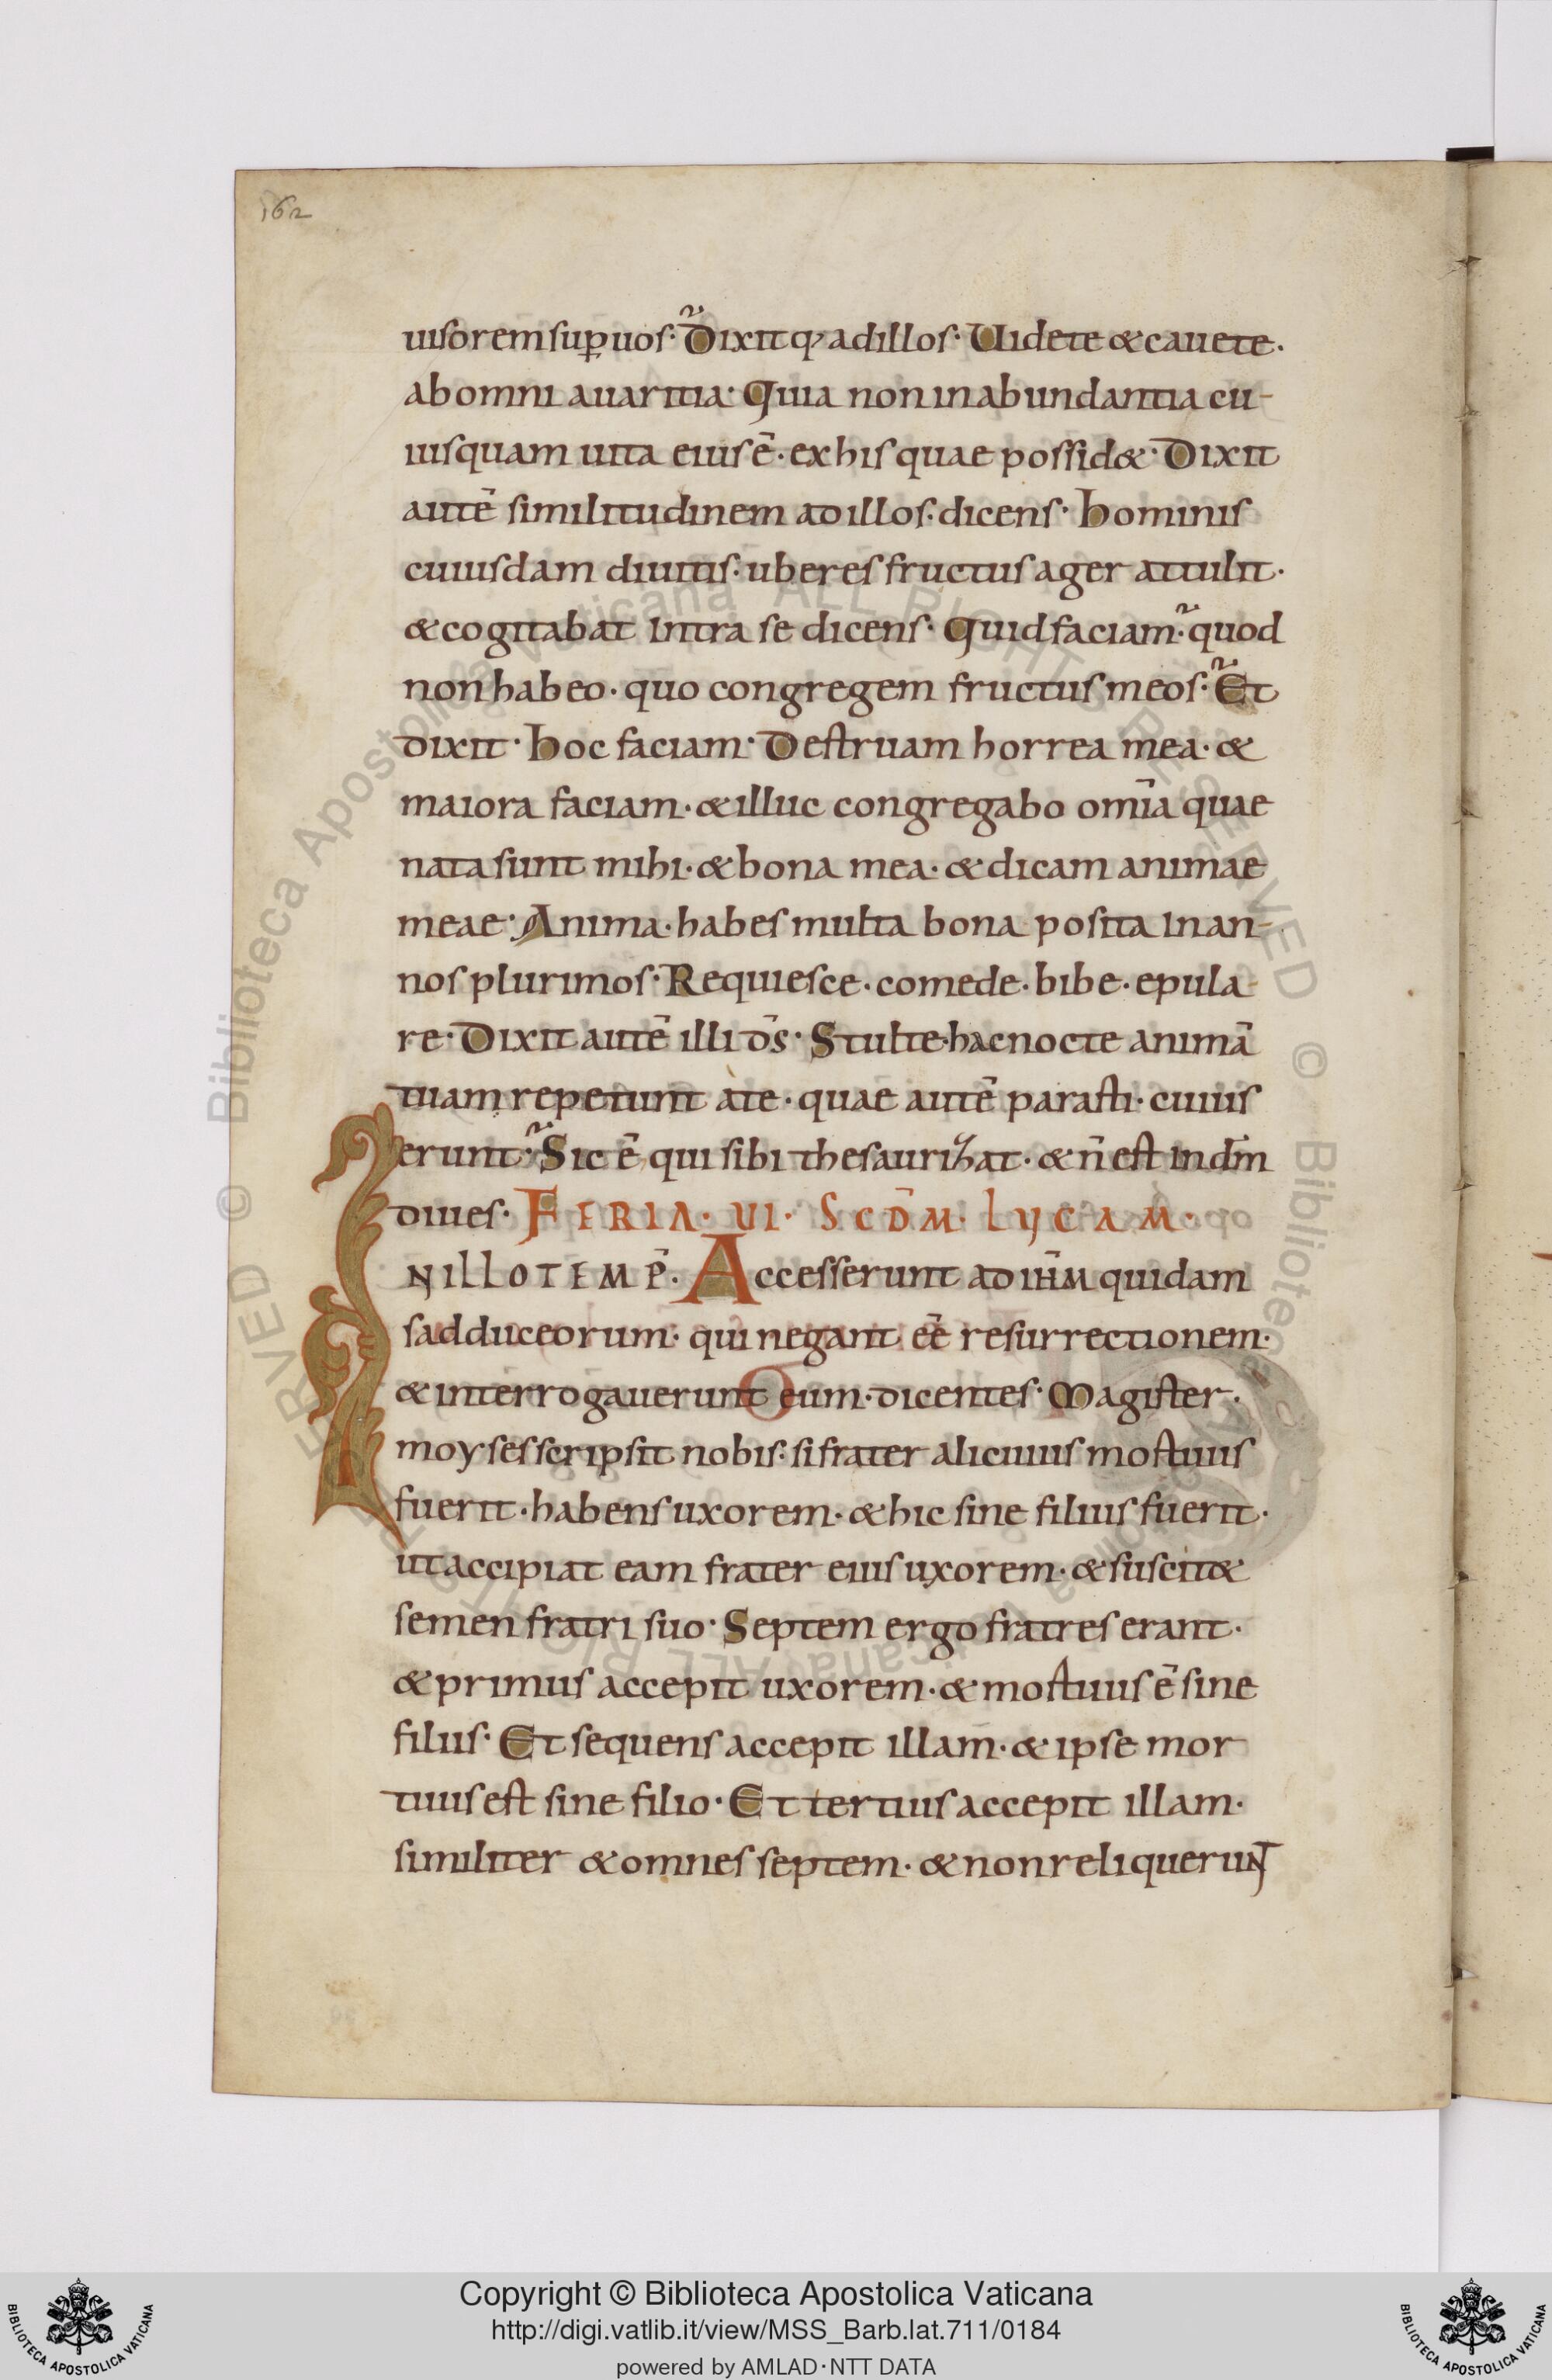 162
uisorem sup̲ uos· Dixitq; ad illos· Uidete & cauete·
ab omni auaritia· Quia non in abundantia cu-
iusquam uita eius ē· ex his quae possid&· Dixit
autē similitudinem ad illos· dicens· hominis
cuiusdam diuitis· uberes fructus ager attulit·
& cogitabat intra se dicens· Quid faciam· quod
non habeo· quo congregem fructus meos· Et
dixit· hoc faciam· Destruam horrea mea· &
maiora faciam· & illuc congregabo om̄ia quae
nata sunt mihi· & bona mea· & dicam animae
meae· Anima· habes multa bona posita in an-
nos plurimos· Requiesce· comede· bibe· epula-
re· Dixit autē illi d̄s· Stulte· hac nocte animā
tuam repetunt a te· quae autē parasti· cuius
erunt· Sic ē qui sibi thesaurizat· & n̄ est in dm̄
diues· FERIA· VI· SCD̄M· LUCAM·
IN ILLO TEMP̄· Accesserunt ad ih̄m quidam
sadduceorum· qui negant eē resurrectionem·
& interrogauerunt eum· dicentes· Magister·
moyses scripsit nobis· si frater alicuius mortuus
fuerit· habens uxorem· & hic sine filiis fuerit·
ut accipiat eam frater eius uxorem· & suscit&
semen fratri suo· Septem ergo fratres erant·
& primus accepit uxorem· & mortuus ē sine
filiis· Et sequens accepit illam· & ipse mor
tuus est sine filio· Et tertius accepit illam·
similiter & omnes septem· & non reliquerunt
Copyright © Biblioteca Apostolica Vaticana
http://digi.vatlib.it/view/MSS_Barb.lat.711/0184
powered by AMLAD·NTT DATA
BIBLIOTECA APOSTOLICA VATICANA
BIBLIOTECA APOSTOLICA VATICANA